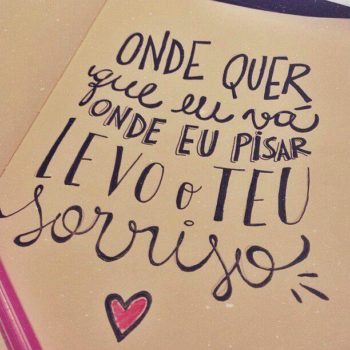 ONDE QUER
que eu vá
ONDE EU PISAR
LEVO o TEU
sorriso